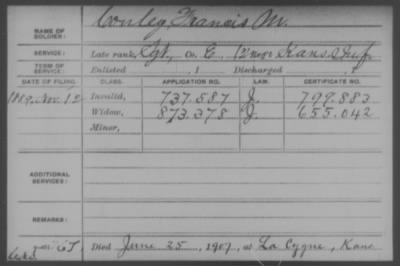 NAME OF SOLDIER: Conley, Francis M.
SERVICE: Late rank, Sgt, Co. E, 12 Regt Kans. Inf.
TERM OF SERVICE: Enlisted , 1 Discharged , 1
DATE OF FILING. CLASS. APPLICATION NO. LAW. CERTIFICATE NO.
1889, Nov. 12 Invalid, 737.587 J. 799.883
Widow, 873.378 J. 655.042
Minor,
ADDITIONAL SERVICES:
REMARKS:
Died June 25, 1907, at La Cygne, Kans